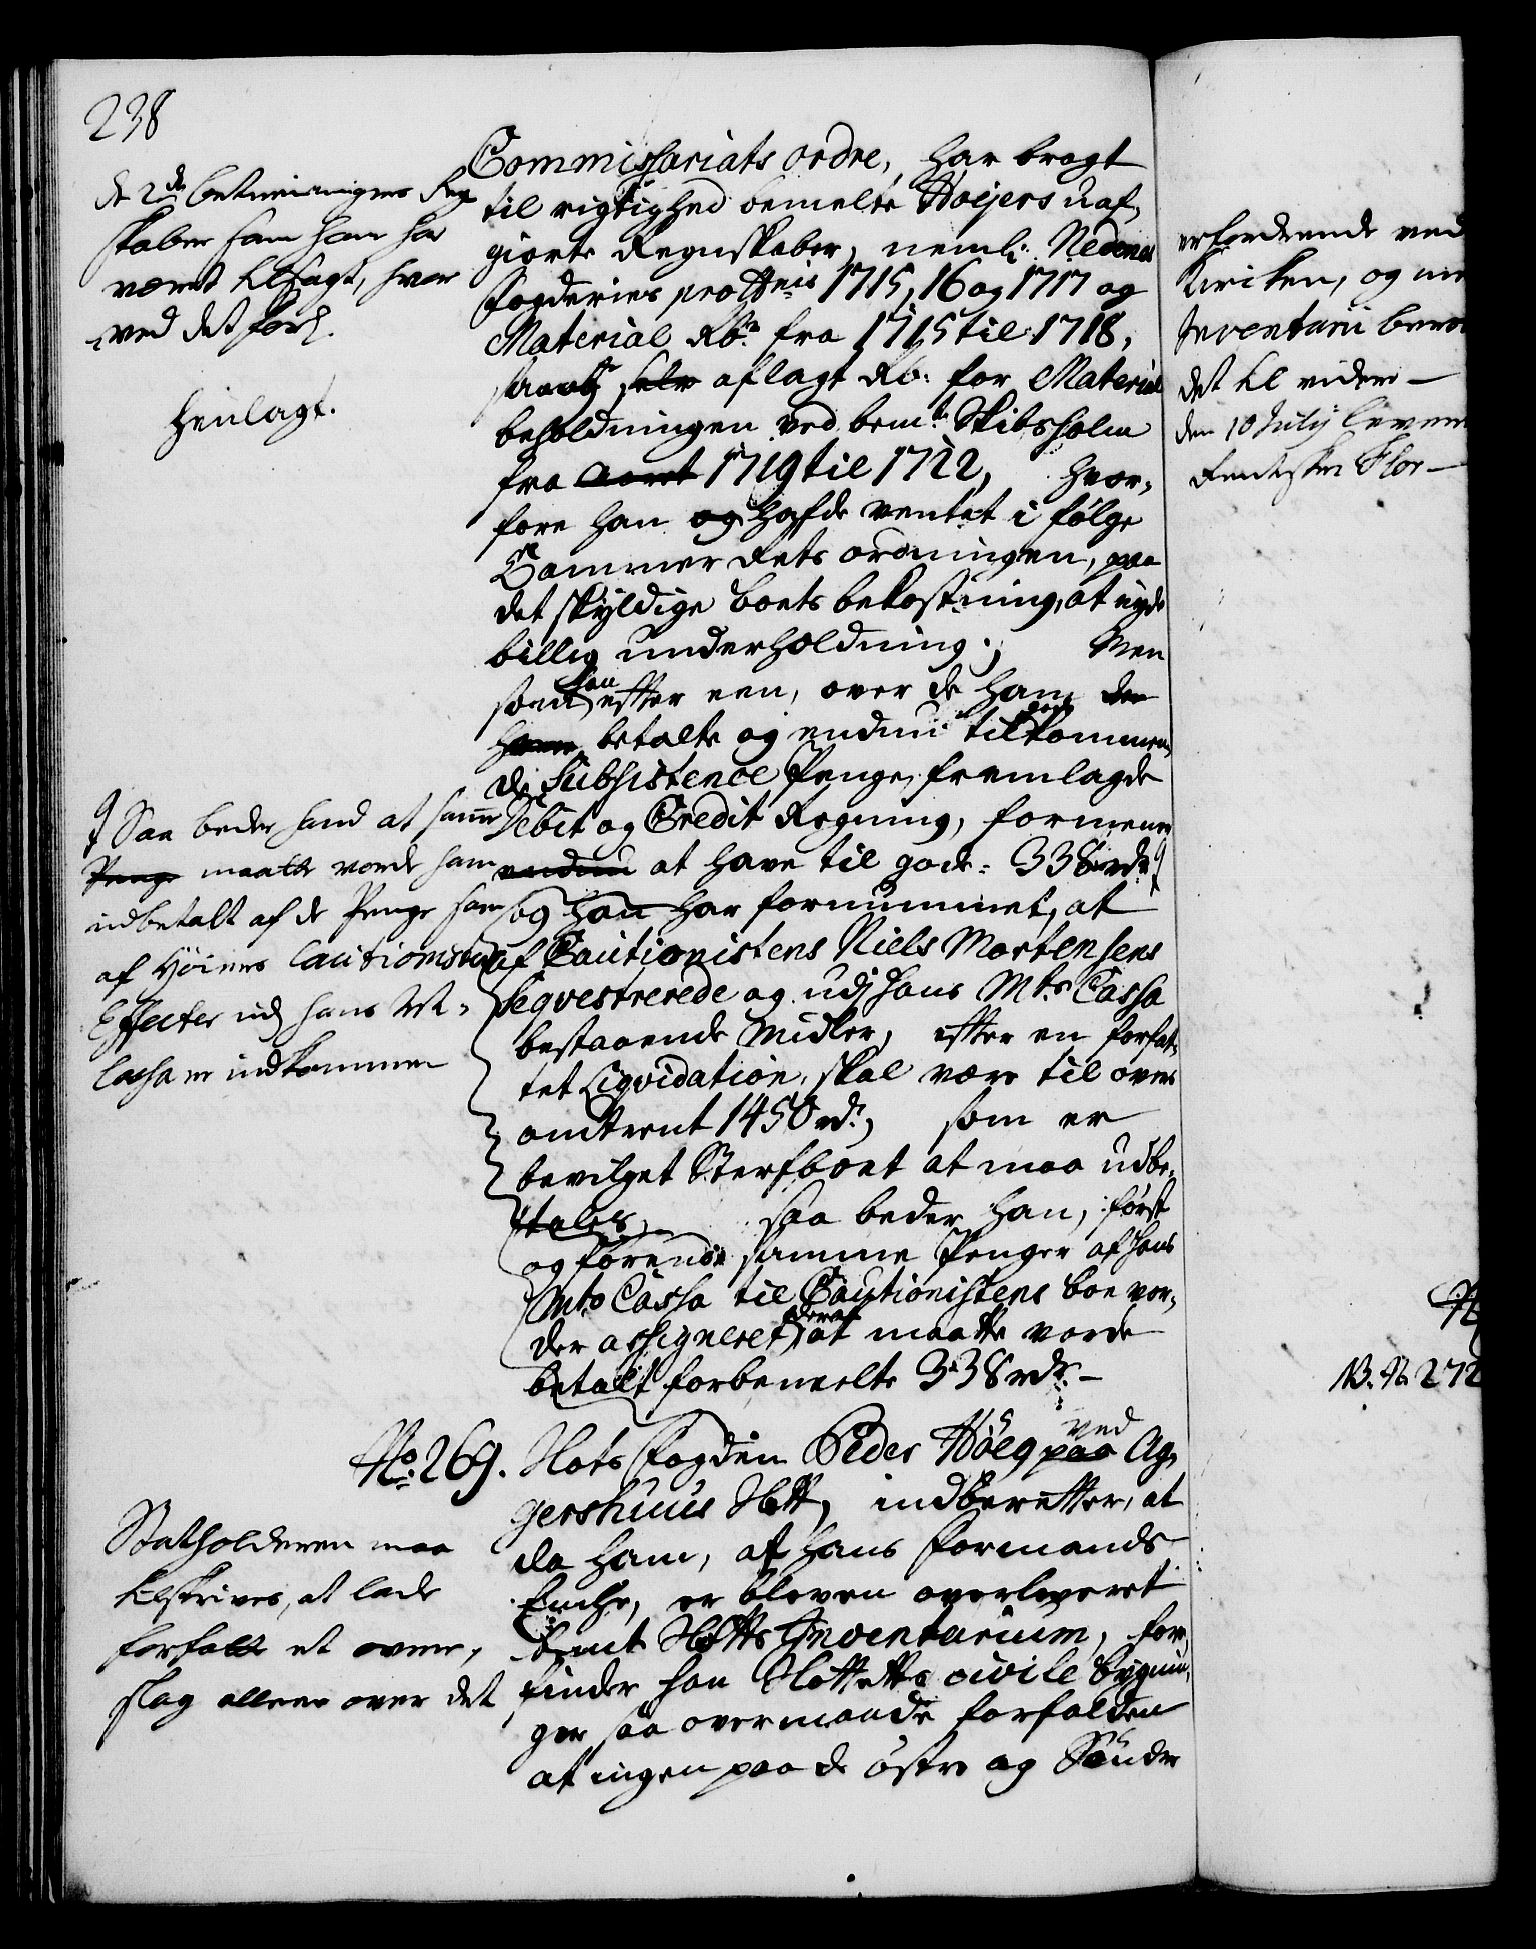 238
de 2de betieningers Reg
skaber som han har
været tilsagt, hvor
ved det forh.
henlagt.
Commissariats ordre, har bragt
til rigtighed bemelte Høijers uaf
giorte Regnskaber, neml: Nedenes
Fogderies pro Annis 1715, 16 og 1717 og
Material Rb: fra 1715 til 1718,
samt selv aflagt Rb: for Material
beholdningen ved bemt: Skibsholm
fra Aaret 1719 til 1722, hvor-
fore han og hafde ventet i følge
Cammer Rets ordningen, paa
det skyldige boets bekostning, at nyde
billig underholdning; Men
som han efter een, over de ham den
ham betalte og endnu tilkommen
de Subsistence Penge, fremlagde
Debet og Credit Regning, formener
endnu at have til gode: 338 rdr
og han har fornummet, at
af Cautionistens Niels Mortensens
Seqvestrerede og udj Hans Mts Cassa
bestaaende Midler, efter en forfat-
tet Liqvidation, skal være til overs
omtrent 1450 rd:, som er
bevilget Sterfboet at maa udbe-
tales, saa beder han, først
og førend samme Penger af Hans
Mts Cassa til Cautionistens boe vor-
der assigneret, deraf at maatte vorde
betalt forbemelte 338 rdr: -
& Saa beder hand at samme
Penge maatte vorde ham
udbetalt af de Penge som
af Høiers Cautionistes
Effecter udj hans Mts
Cassa er indkommen
No: 269. Slots Fogden Peder Höeg paa ved Ag-
gershuus Slott, indberetter, at
da ham, af hans formands
Encke, er bleven overleveret
bemt Slotts Inventarium, for-
finder han Slottetts civile bygnin-
ger saa overmaade forfalden
at ingen paa de østre og Søndre
Statholderen maa
tilskrives, at lade
forfatte et over-
slag alleene over det
erfordrende ved
Kirken, og
Inventarii
det til videre -
den 10 July
NB. No. 272